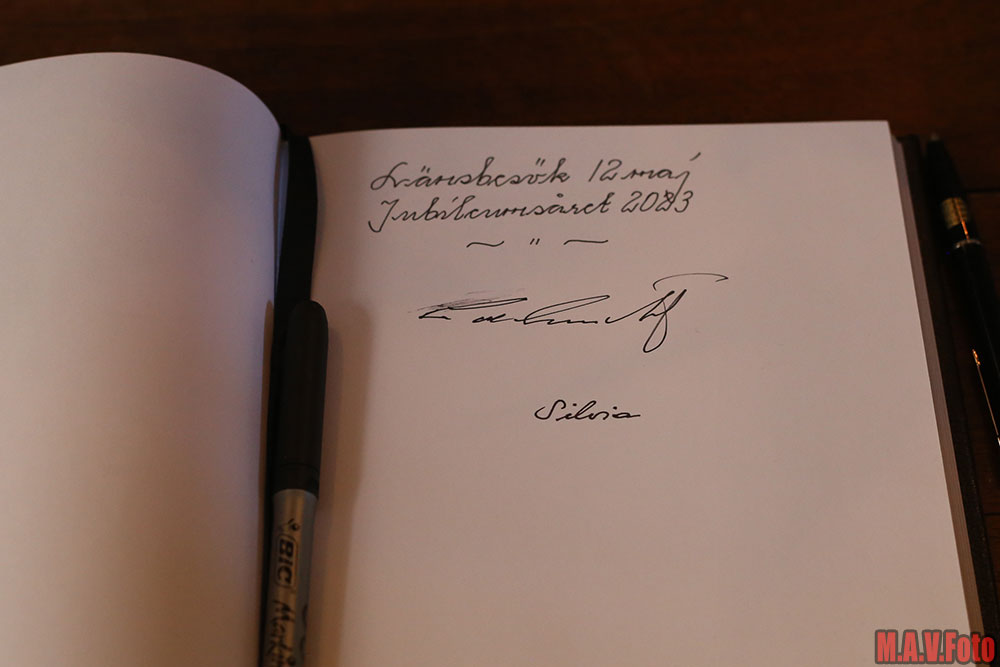 Länsbesök 12 maj
Jubileumsåret 2023
~ " ~
Carl Gustaf
Silvia
BIC
M.A.V.Foto